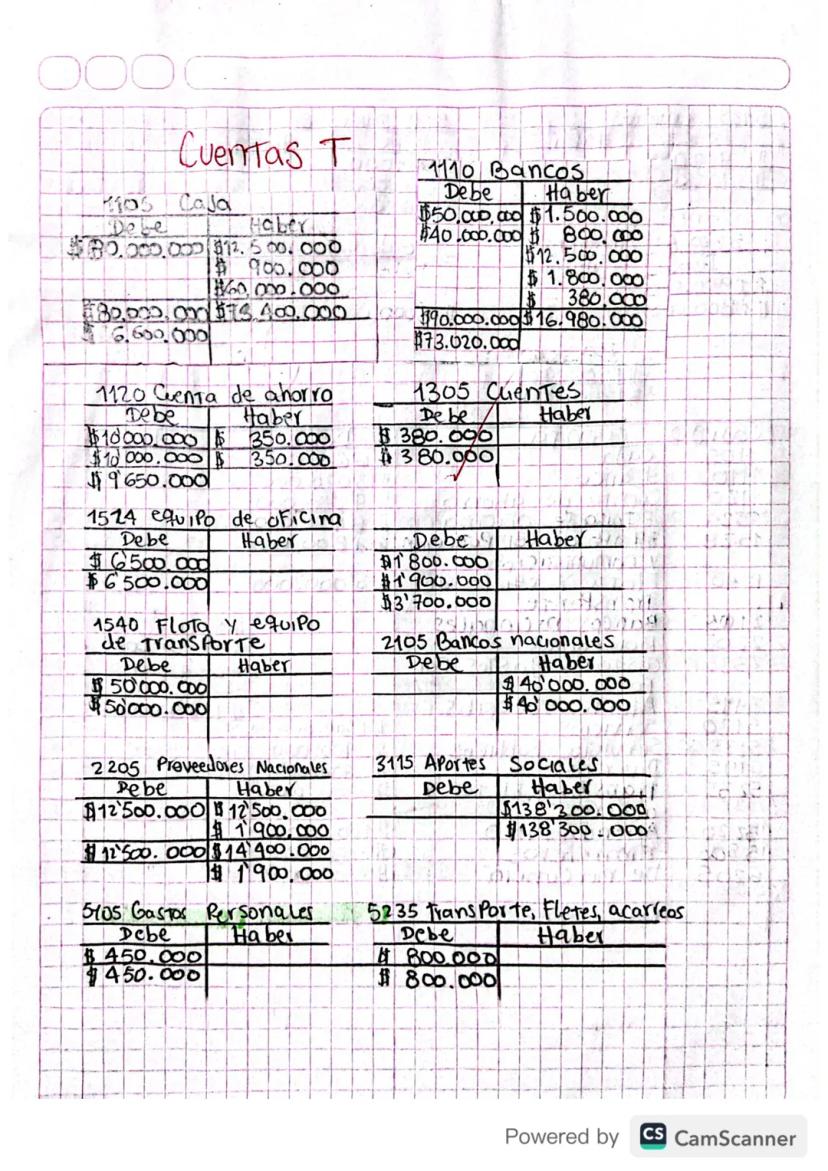 Cuentas T
1105 Caja
Debe Haber
$80.000.000 $12.500.000
$ 900.000
$60.000.000
$80.000.000 $73.400.000
$ 6.600.000
1110 Bancos
Debe Haber
$50.000.000 $1.500.000
$40.000.000 $ 800.000
$12.500.000
$ 1.800.000
$ 380.000
$90.000.000 $16.980.000
$73.020.000
1120 Cuenta de ahorro
Debe Haber
$10'000.000 $ 350.000
$10'000.000 $ 350.000
$9'650.000
1305 Clientes
Debe Haber
$ 380.000
$ 380.000
1524 equipo de oficina
Debe Haber
$ 6'500.000
$ 6'500.000
Debe Haber
$1'800.000
$1'900.000
$3'700.000
1540 Flota y equipo
de Transporte
Debe Haber
$ 50'000.000
$50'000.000
2105 Bancos nacionales
Debe Haber
$40'000.000
$40'000.000
2205 Proveedores Nacionales
Debe Haber
$12'500.000 $12'500.000
$ 1'900.000
$12'500.000 $14'400.000
$ 1'900.000
3115 Aportes Sociales
Debe Haber
$138'300.000
$138'300.000
5105 Gastos Personales
Debe Haber
$ 450.000
$ 450.000
5235 Transporte, Fletes, acarreos
Debe Haber
$ 800.000
$ 800.000
Powered by CS CamScanner